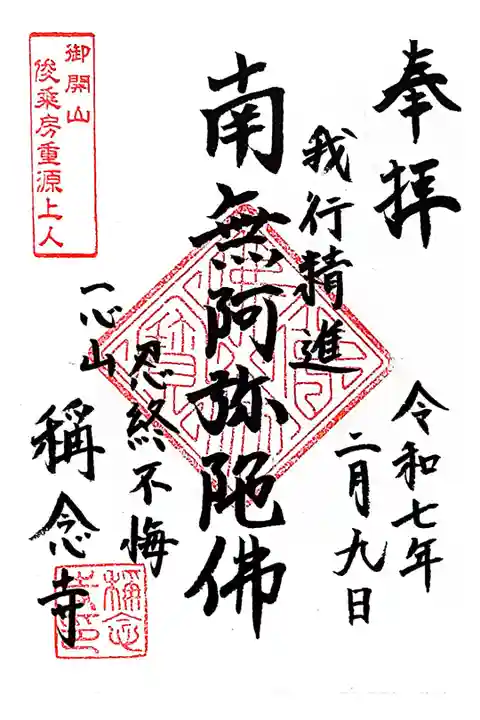 奉拝
令和七年
二月九日
我行精進
南無阿弥陀佛
忍終不悔
一心山
稱念寺
御開山
俊乘房重源上人
稱念
寺印